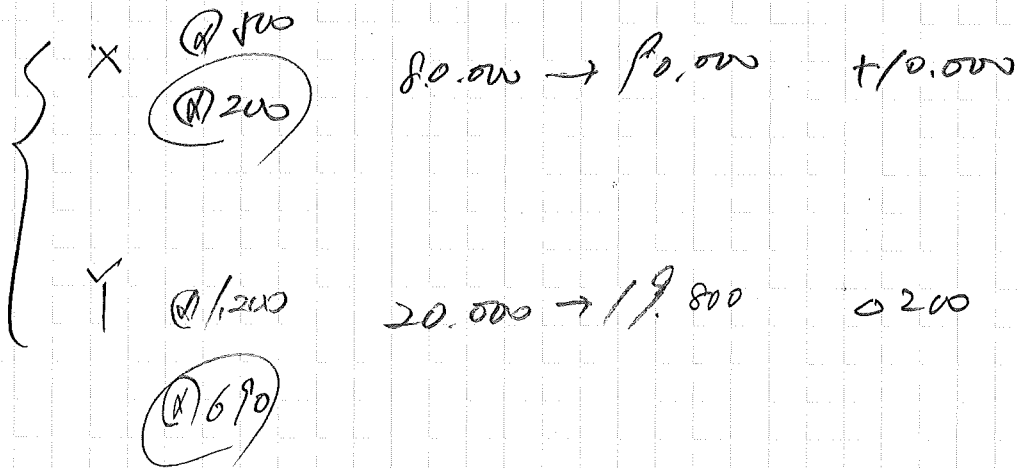 X @ 500
@ 200 80.000 → 90.000 +10.000
Y @ 1,200 20.000 → 19.800 △200
@ 690